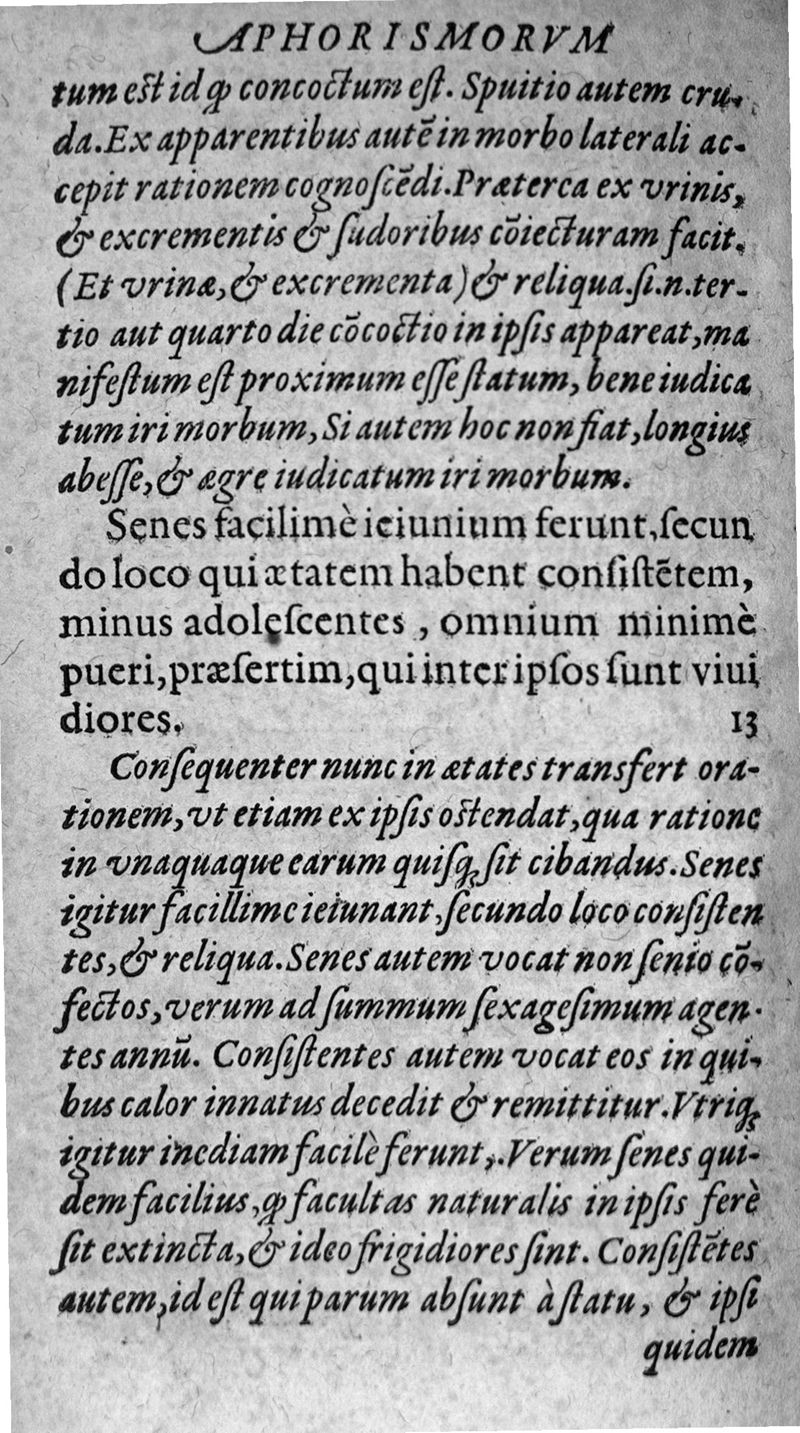 APHORISMORVM
tum est idꝙ concoctum est. Spuitio autem cru-
da. Ex apparentibus autē in morbo laterali ac-
cepit rationem cognoscēdi. Præterea ex vrinis,
& excrementis & sudoribus cōiecturam facit.
(Et vrinæ, & excrementa) & reliqua. si. n. ter-
tio aut quarto die cōcoctio in ipsis appareat, ma
nifestum est proximum esse statum, bene iudica
tum iri morbum, Si autem hoc non fiat, longius
abesse, & ægre iudicatum iri morbum.
Senes facilimè ieiunium ferunt, secun
do loco qui ætatem habent consistētem,
minus adolescentes, omnium minimè
pueri, præsertim, qui inter ipsos sunt viui
diores. 13
Consequenter nunc in ætates transfert ora-
tionem, vt etiam ex ipsis ostendat, qua ratione
in vnaquaque earum quisq; sit cibandus. Senes
igitur facillime ieiunant, secundo loco consisten
tes, & reliqua. Senes autem vocat non senio cō-
fectos, verum ad summum sexagesimum agen-
tes annū. Consistentes autem vocat eos in qui-
bus calor innatus decedit & remittitur. Vtriq;
igitur inediam facilè ferunt,. Verum senes qui-
dem facilius, ꝙ facultas naturalis in ipsis ferè
sit extincta, & ideo frigidiores sint. Consistētes
autem, id est qui parum absunt à statu, & ipsi
quidem